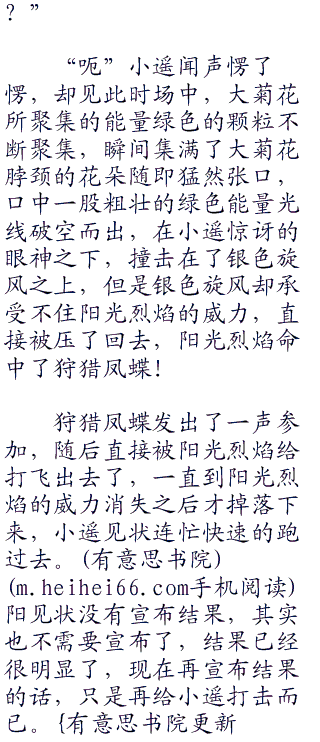 ？”
“呃”小遥闻声愣了
愣，却见此时场中，大菊花
所聚集的能量绿色的颗粒不
断聚集，瞬间集满了大菊花
脖颈的花朵随即猛然张口，
口中一股粗壮的绿色能量光
线破空而出，在小遥惊讶的
眼神之下，撞击在了银色旋
风之上，但是银色旋风却承
受不住阳光烈焰的威力，直
接被压了回去，阳光烈焰命
中了狩猎凤蝶！
狩猎凤蝶发出了一声参
加，随后直接被阳光烈焰给
打飞出去了，一直到阳光烈
焰的威力消失之后才掉落下
来，小遥见状连忙快速的跑
过去。(有意思书院)
(m.heihei66.com手机阅读)
阳见状没有宣布结果，其实
也不需要宣布了，结果已经
很明显了，现在再宣布结果
的话，只是再给小遥打击而
已。{有意思书院更新